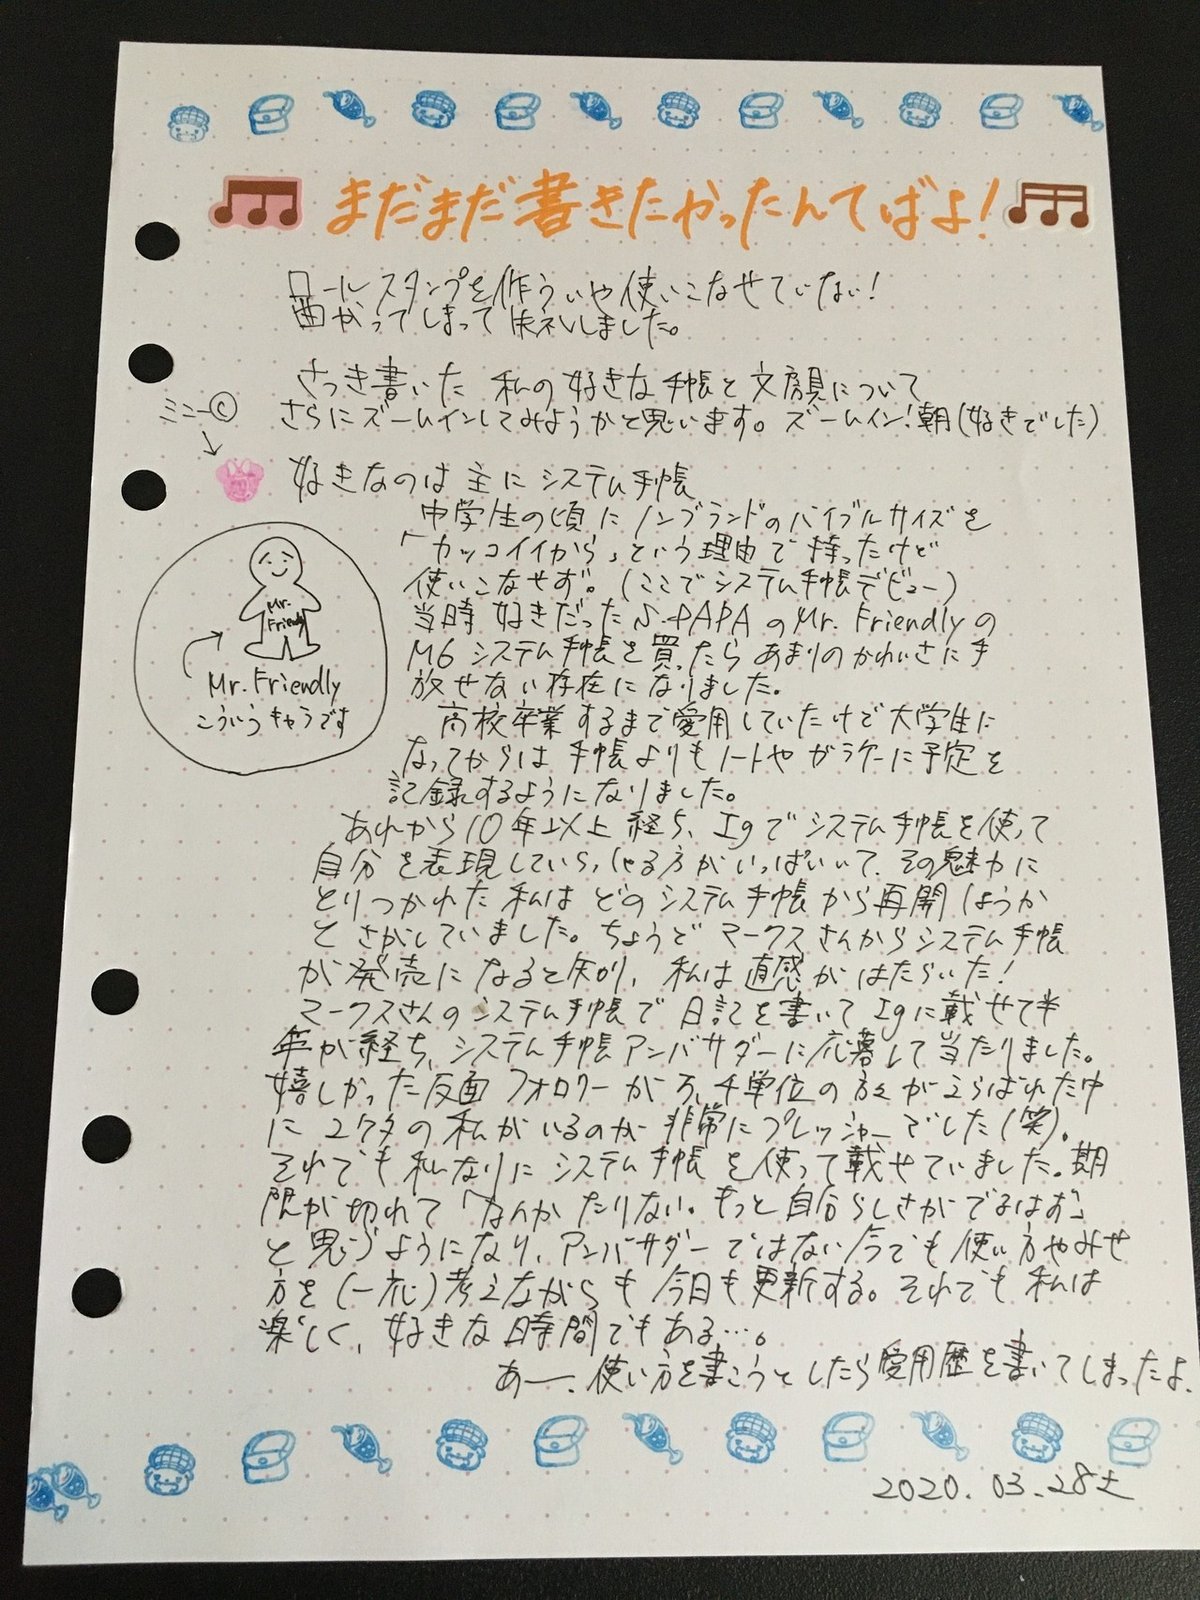 まだまだ書きたかったんてばよ!
ロールスタンプを 使いこなせていない!
曲がってしまって失礼しました。
さっき書いた 私の好きな手帳と文房具について
さらにズームインしてみようかと思います。ズームイン!朝(好きでした)
ミニーⒸ
好きなのは 主に システム手帳
中学生の頃に ノンブランドのバイブルサイズを
「カッコイイから」という理由で持ったけど
使いこなせず。(ここでシステム手帳デビュー)
当時 好きだった S.PAPAのMr. Friendlyの
M6 システム手帳を買ったら あまりのかわいさに手
放せない存在になりました。
高校卒業するまで愛用していたけで大学生に
なってからは 手帳よりもノートや ガラケーに予定を
記録するようになりました。
Mr. Friendly
Mr. Friendly
こういうキャラです
あれから10年以上経ち、Igでシステム手帳を使って
自分を表現していらっしゃる方がいっぱいいて、その魅力に
とりつかれた私は どのシステム手帳から再開しようか
と さがしていました。ちょうど マークスさんからシステム手帳
が発売になると知り、私は直感がはたらいた!
マークスさんのシステム手帳で 日記を書いて Igに載せて半
年が経ち、システム手帳アンバサダーに応募して当たりました。
嬉しかった反面 フォロワーが万、千単位の方々がえらばれた中
に 2ケタの私がいるのが 非常にプレッシャーでした(笑)。
それでも私なりに システム手帳を使って載せていました。期
限が切れて「なんか たりない。もっと自分らしさがでるはず」
と思うようになり、アンバサダーではない今でも使い方やみせ
方を(一応)考えながらも 今日も更新する。それでも私は
楽しく、好きな時間でもある…。
あー、使い方を書こうとしたら愛用歴を書いてしまったよ、
2020.03.28土